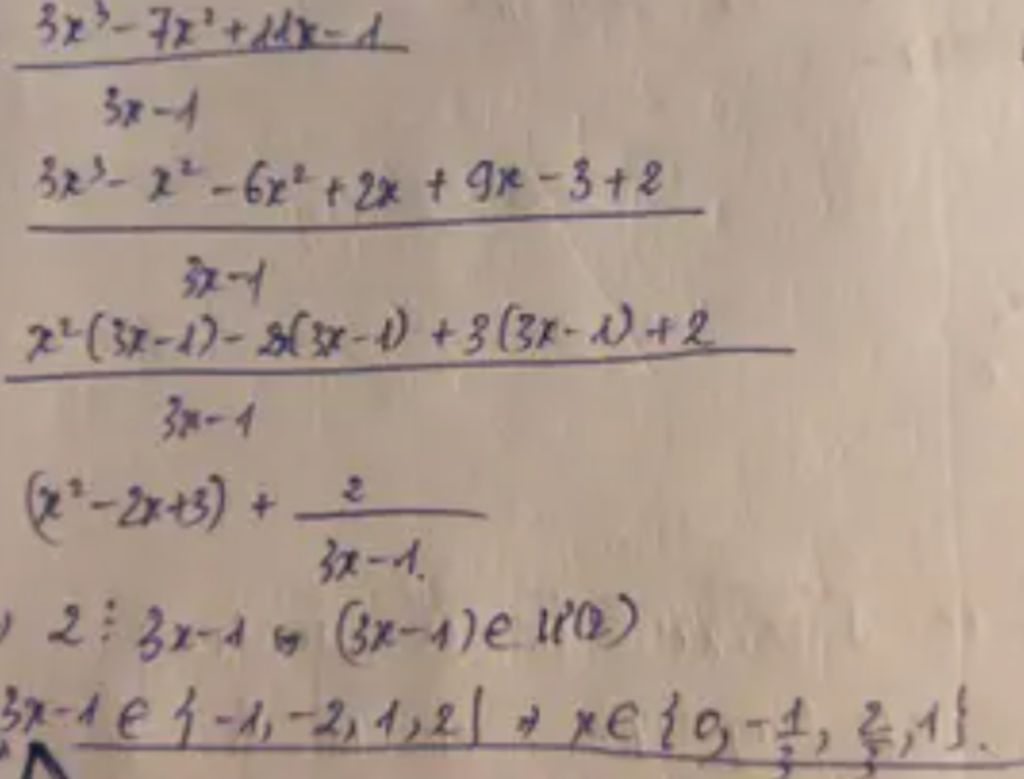 3x³ - 7x² + 11x - 1
3x - 1
3x³ - x² - 6x² + 2x + 9x - 3 + 2
3x - 1
x²(3x - 1) - 2x(3x - 1) + 3(3x - 1) + 2
3x - 1
(x² - 2x + 3) + 2
3x - 1.
2 ⋮ 3x - 1 ⇔ (3x - 1) ∈ Ư(2)
3x - 1 ∈ {-1, -2, 1, 2} ⇒ x ∈ {0, -1/3, 2/3, 1}.